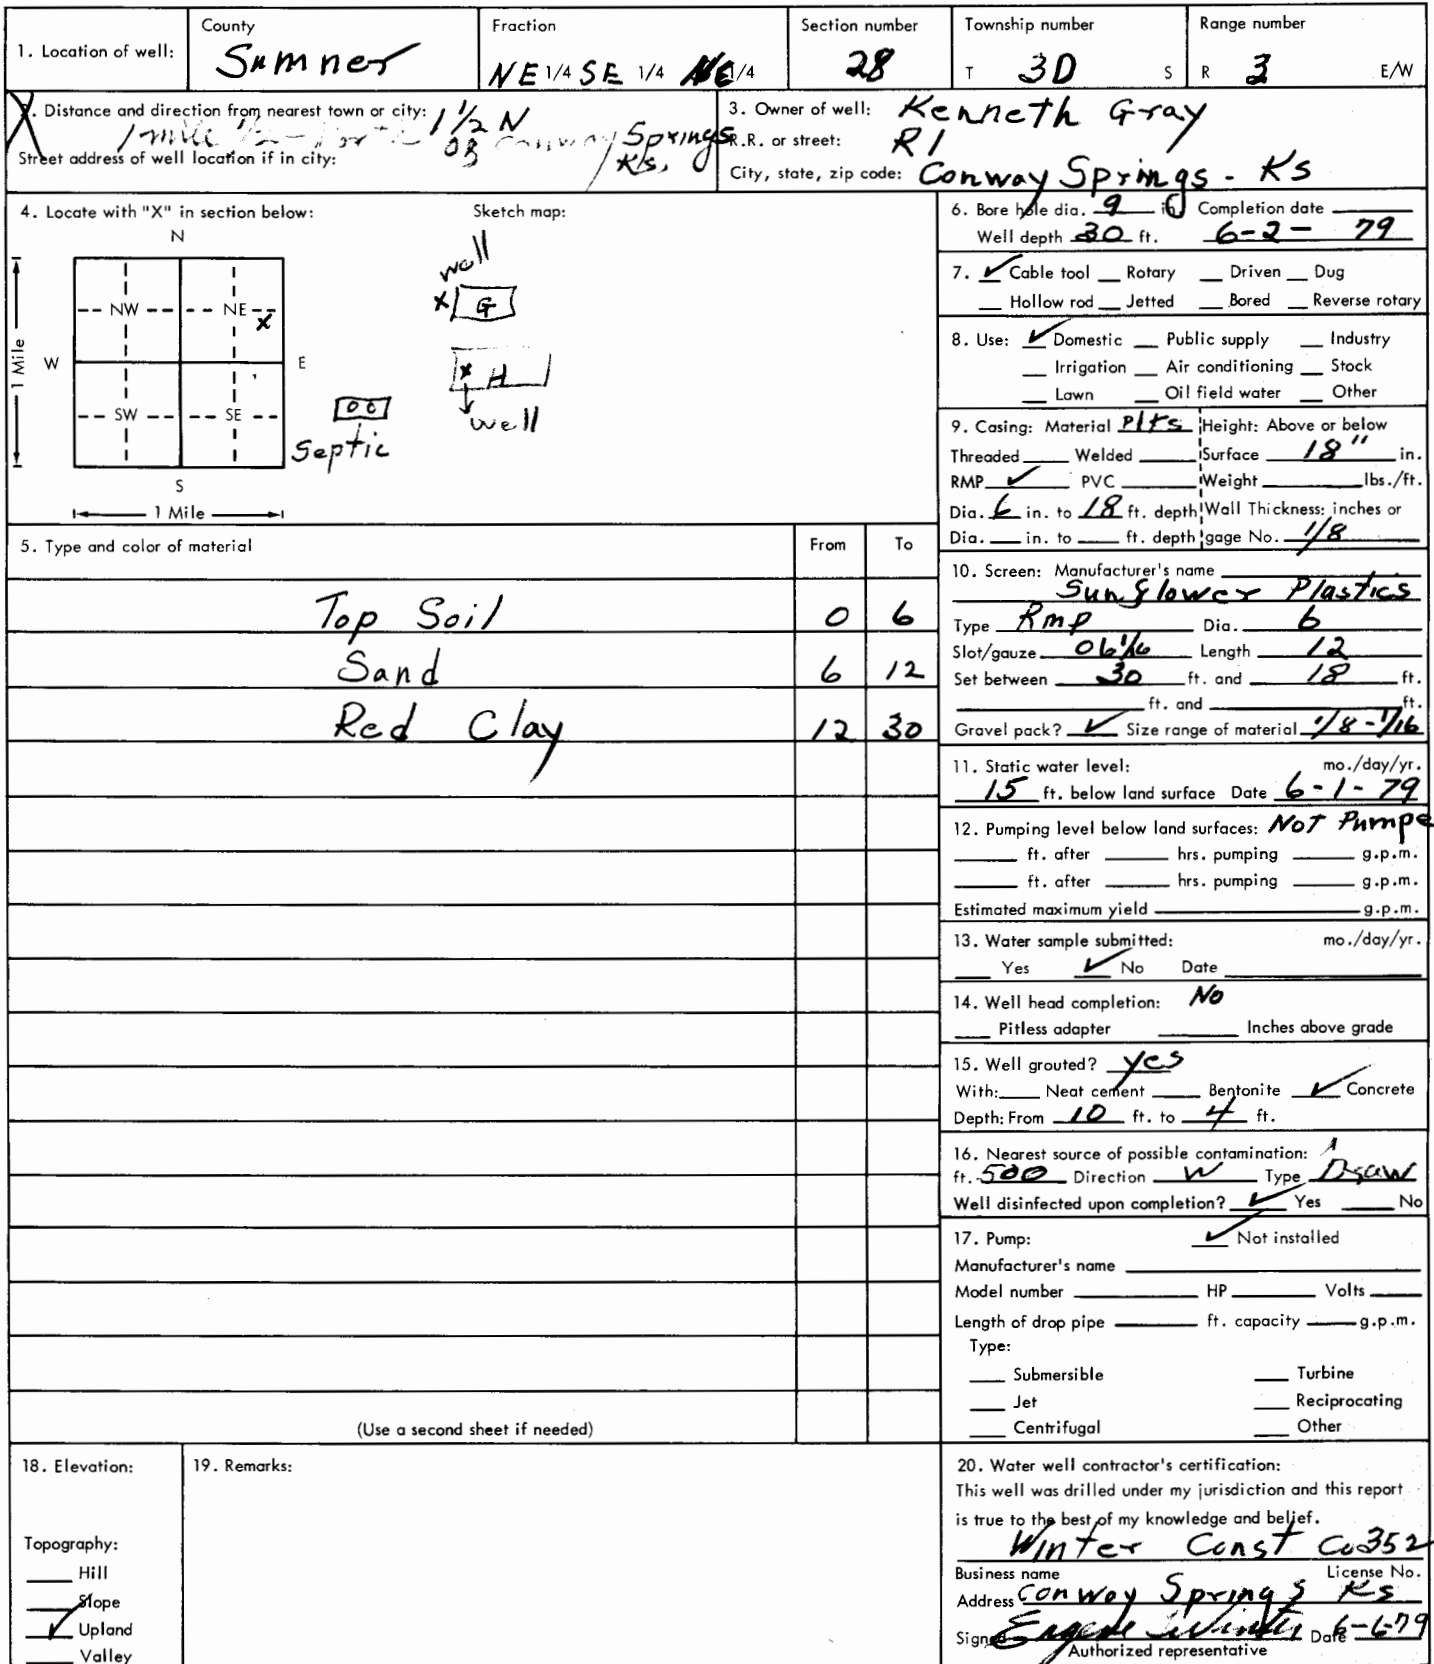 1. Location of well:
County
Sumner
Fraction
NE 1/4 SE 1/4 NE 1/4
Section number
28
Township number
T 30 S
Range number
R 3 E/W
2. Distance and direction from nearest town or city: 1 1/2 N
1 mile 1/2 of Conway Springs
Ks.
Street address of well location if in city:
3. Owner of well: Kenneth Gray
R.R. or street: R1
City, state, zip code: Conway Springs - Ks
4. Locate with "X" in section below:
N
NW NE
X
W E
SW SE
S
1 Mile
1 Mile
Sketch map:
well
x G
x H
well
Septic
5. Type and color of material From To
Top Soil 0 6
Sand 6 12
Red Clay 12 30
(Use a second sheet if needed)
6. Bore hole dia. 9 in Completion date
Well depth 30 ft. 6-2- 79
7. ✓ Cable tool __ Rotary __ Driven __ Dug
__ Hollow rod __ Jetted __ Bored __ Reverse rotary
8. Use: ✓ Domestic __ Public supply __ Industry
__ Irrigation __ Air conditioning __ Stock
__ Lawn __ Oil field water __ Other
9. Casing: Material Plts Height: Above or below
Threaded __ Welded __ Surface 18" in.
RMP ✓ PVC __ Weight __ lbs./ft.
Dia. 6 in. to 18 ft. depth Wall Thickness: inches or
Dia. __ in. to __ ft. depth gage No. 1/8
10. Screen: Manufacturer's name
Sunflower Plastics
Type Rmp Dia. 6
Slot/gauze 06 1/16 Length 12
Set between 30 ft. and 18 ft.
__ ft. and __ ft.
Gravel pack? ✓ Size range of material 1/8 - 1/16
11. Static water level: mo./day/yr.
15 ft. below land surface Date 6-1-79
12. Pumping level below land surfaces: Not Pumpe
__ ft. after __ hrs. pumping __ g.p.m.
__ ft. after __ hrs. pumping __ g.p.m.
Estimated maximum yield __ g.p.m.
13. Water sample submitted: mo./day/yr.
__ Yes ✓ No Date __
14. Well head completion: No
__ Pitless adapter __ Inches above grade
15. Well grouted? yes
With: __ Neat cement __ Bentonite ✓ Concrete
Depth: From 10 ft. to 4 ft.
16. Nearest source of possible contamination:
ft. 500 Direction W Type
Well disinfected upon completion? ✓ Yes __ No
17. Pump: ✓ Not installed
Manufacturer's name __
Model number __ HP __ Volts __
Length of drop pipe __ ft. capacity __ g.p.m.
Type:
__ Submersible __ Turbine
__ Jet __ Reciprocating
__ Centrifugal __ Other
18. Elevation:
Topography:
__ Hill
__ Slope
✓ Upland
__ Valley
19. Remarks:
20. Water well contractor's certification:
This well was drilled under my jurisdiction and this report
is true to the best of my knowledge and belief.
Winter Const Co 352
Business name License No.
Address Conway Springs Ks
Signed Eugene Winter Date 6-6-79
Authorized representative